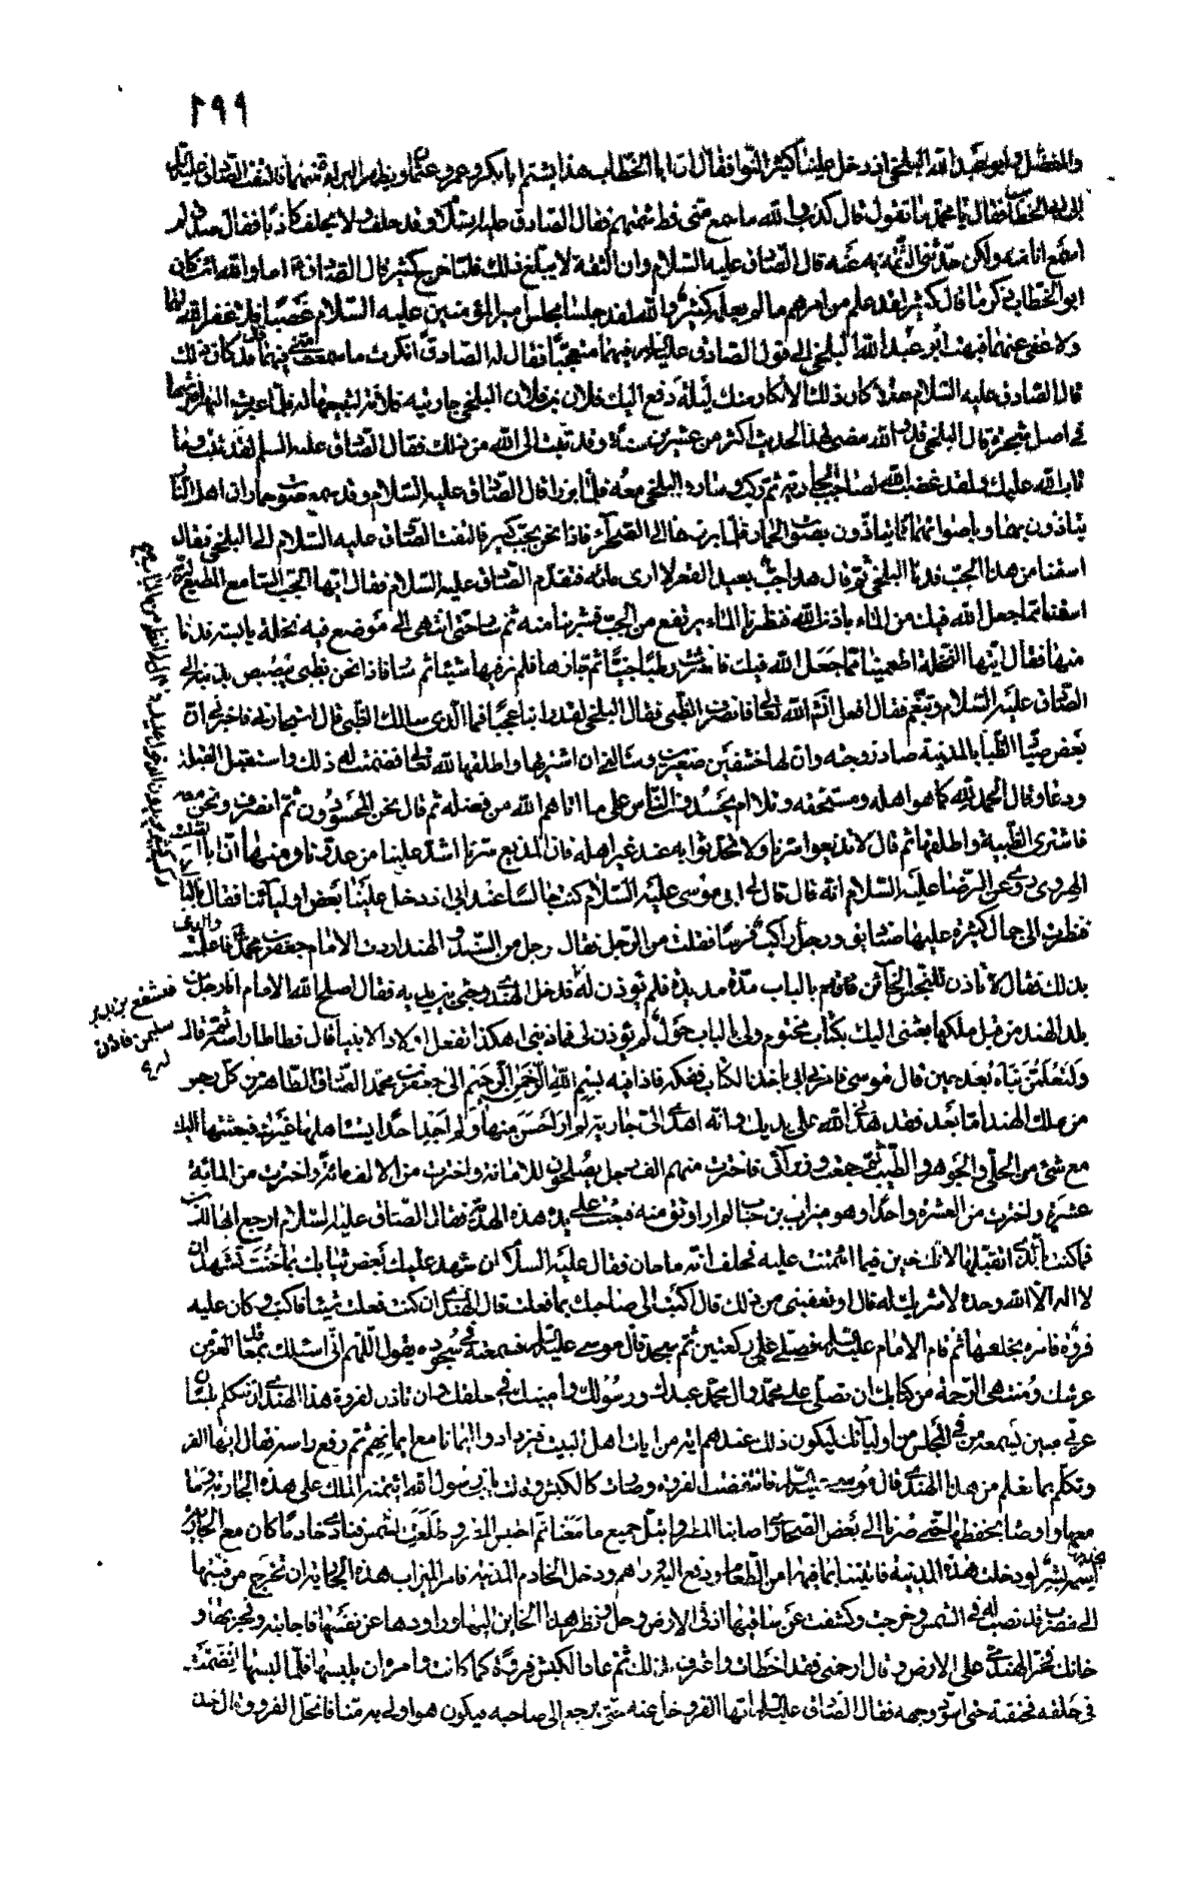 ١٩٩
والمفضل وابو عبد الله البلخي اذ دخل علينا كثير النوا فقال ان ابا الخطاب هذا يشتم ابا بكر وعمر وعثمان ويظهر البراءة منهم فالتفت الصادق عليه
الى ابي الخطاب فقال يا محمد ما تقول قال كذب والله ما سمع مني قط شتمهم فقال الصادق عليه السلام قد حلف ولا يحلف كاذبا فقال صدق لم
اسمع انا منه ولكن حدثني الثقة به عنه قال الصادق عليه السلام وان الثقة لا يبلغ ذلك فلما خرج كثير قال الصادق اما والله لئن كان
ابو الخطاب ذكر ما قال كثير لقد علم من امرهم ما لم يعلم كثير والله لقد جلسا مجلس امير المؤمنين عليه السلام غصبا فلا غفر الله لهما
ولا عفى عنهما فبهت ابو عبد الله البلخي الى قول الصادق عليه متعجبا فقال له الصادق انكرت ما سمعت فيهما قال قد كان ذلك
قال الصادق عليه السلام فهلا كان ذلك الانكار منك ليلة دفع اليك فلان بن فلان البلخي جاريته فلانة لتبيعها له فلما عبرت النهر
في اصل شجرة قال البلخي قد والله مضى لهذا الحديث اكثر من عشرين سنة وقد تبت الى الله من ذلك فقال الصادق عليه السلم لقد تبت وما
تاب الله عليك ولقد غضب الله لصاحب الجارية ثم ركب وسار والبلخي معه فلما برزا قال الصادق عليه السلام وقد سمع صوت حمار ان اهل النار
يتاذون بهما وباصواتهما كما تتاذون بصوت الحمار فلما برزنا الى الصحراء فاذا نحن بجب كبير فالتفت الصادق عليه السلام الى البلخي فقال
اسقنا من هذا الجب فدنا البلخي ثم قال هذا جب بعيد القعر لا ارى ماء فتقدم الصادق عليه السلام فقال ايها الجب السامع المطيع لربه
اسقنا مما جعل الله فيك من الماء باذن الله فنظرنا الماء يرتفع من الجب فشربنا منه ثم سار حتى انتهى الى موضع فيه نخلة يابسة فدنا
منها فقال ايتها النخلة اطعمينا مما جعل الله فيك فانتثرت رطبا جنيا ثم جازها فلم نر فيها شيئا ثم سار فاذا نحن بظبي يبصبص بذنبه الى
الصادق عليه السلام وتبغم فقال افعل انشاء الله تعالى فانصرف الظبي فقال البلخي لقد راينا عجبا فما الذي سالك الظبي قال استجار بي فاخبرني ان
بعض صيادي الظبا بالمدينة صاد زوجته وان لها خشفين صغيرين وسالني ان اشتريها واطلقها لله تعالى فضمنت له ذلك واستقبل القبلة
ودعا وقال الحمد لله كما هو اهله ومستحقه وتلا ام يحسدون الناس على ما اتاهم الله من فضله ثم قال نحن المحسودون ثم انصرف ونحن معه
فاشترى الظبية واطلقها ثم قال لا تذيعوا سرنا ولا تحدثوا به عند غير اهله فان المذيع سرنا اشد علينا من عدونا ومنها ان ابا الصلت
الهروي روى عن الرضا عليه السلام انه قال قال لي ابي موسى عليه السلام كنت جالسا عند ابي اذ دخل علينا بعض اوليائنا فقال بالباب
فنظرت الى جمال كثيرة عليها صناديق ورجل راكب فرسا فقلت من الرجل فقال رجل من السند والهند اردت الامام جعفر بن محمد فاعلمت والدي
بذلك فقال لا تاذن للنجس الخائن فاقام بالباب مدة مديدة فلم يؤذن له فدخل الهندي وجثى بين يديه فقال اصلح الله الامام انا رجل من
بلد الهند من قبل ملكها بعثني اليك بكتاب مختوم ولي بالباب حول لم تؤذن لي فما ذنبي اهكذا تفعل اولاد الانبيا قال فطاطا راسه ثم قال
ولتعلمن نباه بعد حين قال موسى فامرني ابي باخذ الكتاب وفكه فاذا فيه بسم الله الرحمن الرحيم الى جعفر بن محمد الصادق الطاهر من كل رجس
من ملك الهند اما بعد فقد هداني الله على يديك وانه اهدى الي جارية لم ار احسن منها ولم اجد احدا يستاهلها غيرك فبعثتها اليك
مع شئ من الحلي والجوهر والطيب ثم جمعت وزرائي فاخترت منهم الف رجل يصلحون للامانة واخترت من الالف مائة واخترت من المائة
عشرة واخترت من العشرة واحدا وهو ميزاب بن حباب لم ار اوثق منه فبعثت على يده هذه الهدية فقال الصادق عليه السلام ارجع ايها الخائن
فما كنت بالذي اتقبلها لانك خنت فيما ائتمنت عليه فحلف انه ما خان فقال عليه السلام ان شهد عليك بعض ثيابك بما خنت تشهد ان
لا اله الا الله وحده لا شريك له قال او تعفيني من ذلك قال اكتب الى صاحبك بما فعلت قال الهندي ان كنت فعلت شيئا فاكتب وكان عليه
فروة فامره بخلعها ثم قام الامام عليه السلم فصلى ركعتين ثم سجد قال موسى عليه السلم فسمعته في سجوده يقول اللهم اني اسئلك بمعاقد العز من
عرشك ومنتهى الرحمة من كتابك ان تصلي على محمد وال محمد عبدك ورسولك وامينك في خلقك وان تاذن لفروة هذا الهندي ان تتكلم بلسان
عربي مبين يسمعه من في المجلس من اوليائنا ليكون ذلك عندهم اية من ايات اهل البيت فيزدادوا ايمانا مع ايمانهم ثم رفع راسه فقال ايها الفرو
وتكلم بما تعلم من هذا الهندي قال موسى عليه السلم فانتفضت الفروة وصارت كالكبش وقالت يابن رسول الله ائتمنه الملك على هذه الجارية وما
معها واوصاه بحفظها حتى صرنا الى بعض الصحاري واصابنا المطر وابتل جميع ما معنا ثم احتبس المطر وطلعت الشمس فنادى خادما كان مع الجارية
اسمه بشر لو دخلت هذه المدينة فاتيتنا بما فيها من الطعام ودفع اليه دراهم ودخل الخادم المدينة فامر الميزاب هذه الجارية ان تخرج من قبتها
الى مضرب قد نصب له في الشمس فخرجت وكشفت عن ساقيها اذ في الارض وحل فنظر هذا الخاين اليها وراودها عن نفسها فاجابته وفجر بها و
خانك فخر الهندي على الارض وقال ارحمني فقد اخطات واعترف بذلك ثم عاد الكبش فروة كما كانت وامره ان يلبسها فلما لبسها انضمت
في حلقه فخنقته حتى اسود وجهه فقال الصادق عليه السلم ايها الفرو خل عنه حتى يرجع الى صاحبه فيكون هو اولى به منا فانحل الفرو وقال خذ
فشفع يزيد بن
سليمن فاذن
له